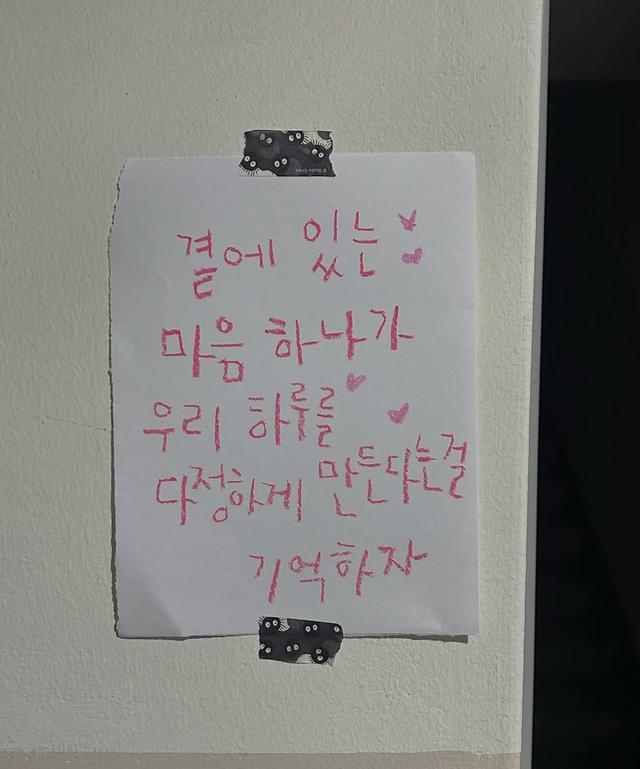 곁에 있는
마음 하나가
우리 하루를
다정하게 만든다는걸
기억하자